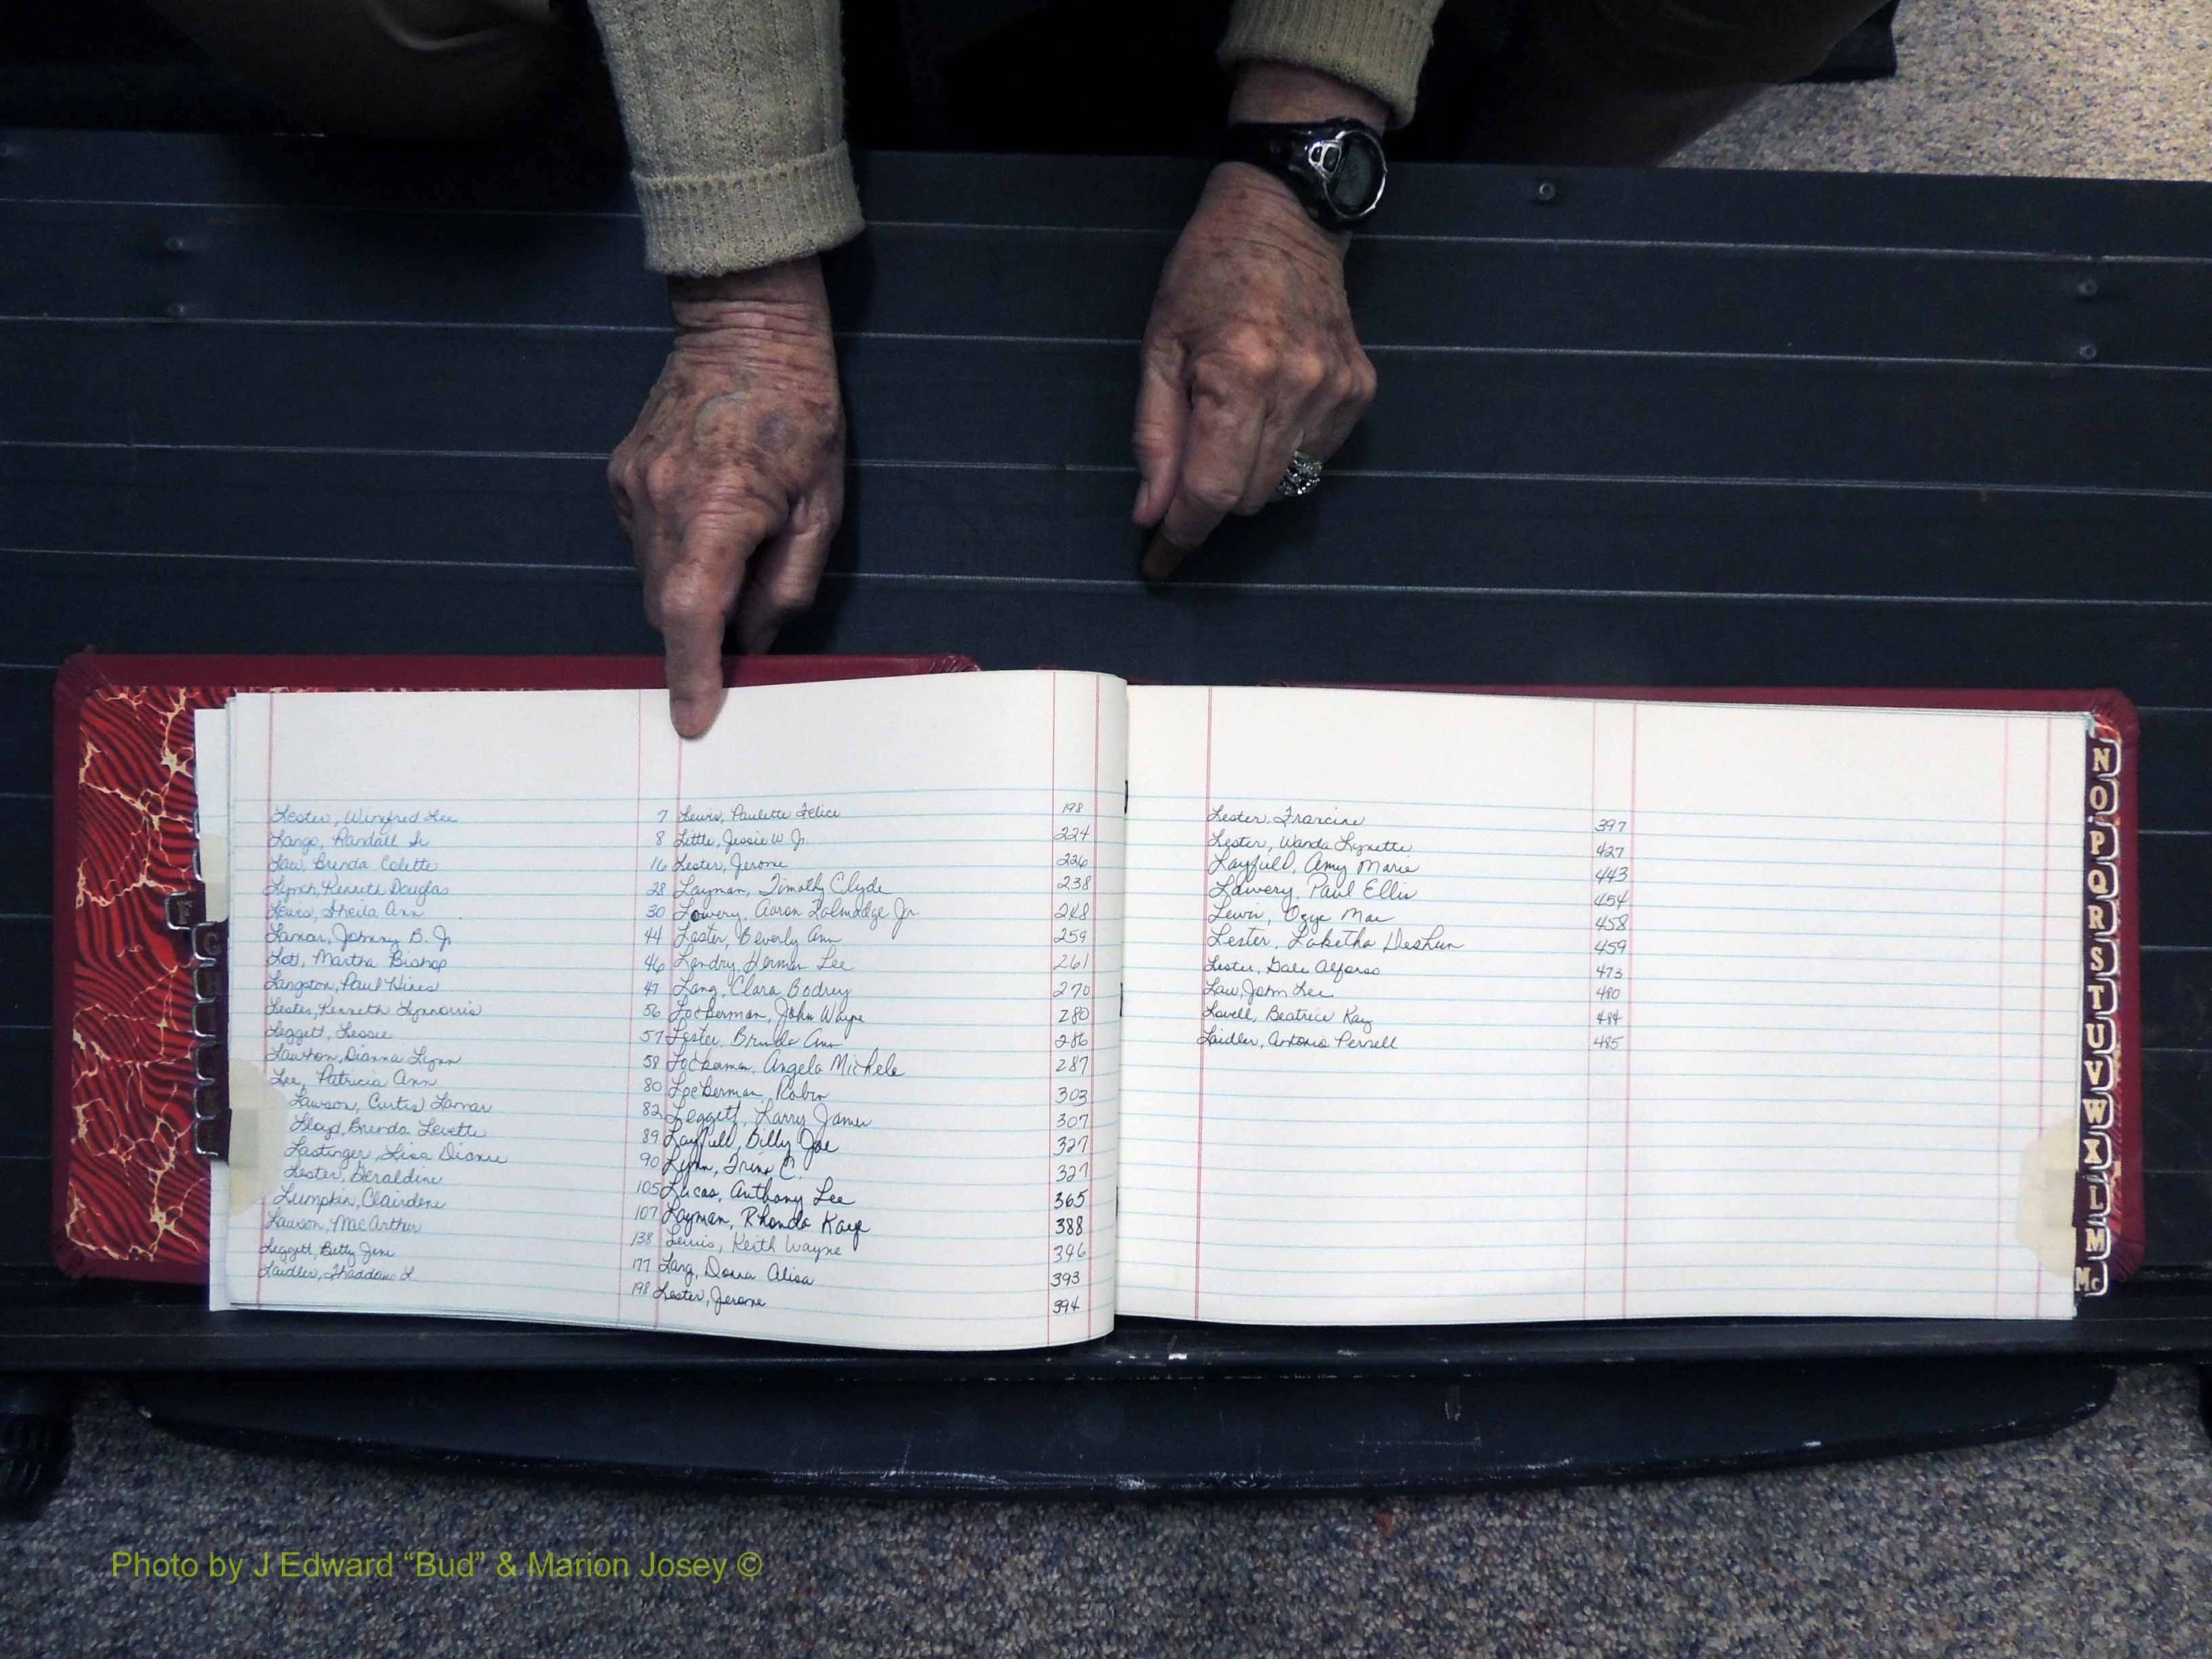 Lester, Winifred Lee 7
Lango, Randall Sr 8
Law, Brenda Colette 16
Lynch, Kenneth Douglas 28
Lewis, Sheila Ann 30
Lamar, Johnny B. Jr 44
Lott, Martha Bishop 46
Langston, Paul Hines 47
Lester, Kenneth Lynnorris 56
Leggett, Lessie 57
Lawton, Dianna Lynn 58
Lee, Patricia Ann 80
Lawson, Curtis Lamar 82
Lloyd, Brenda Levette 89
Lastinger, Lisa Dianne 90
Lester, Geraldine 105
Lumpkin, Clairdene 107
Lawson, MacArthur 138
Leggett, Betty Jene 177
Laidler, Thaddaus L. 198
Lewis, Paulette Felice 198
Little, Jessie W. Jr. 224
Lester, Jerome 236
Layman, Timothy Clyde 238
Lowery, Aaron Talmadge Jr. 248
Lester, Beverly Ann 259
Landry, Herman Lee 261
Lang, Clara Bodrey 270
Lockerman, John Wayne 280
Lester, Brenda Ann 286
Lockerman, Angela Michele 287
Lockerman, Robin 303
Leggett, Larry James 307
Layfield, Billy Joe 327
Lynn, Trina C. 327
Lucas, Anthony Lee 365
Layman, Rhonda Kaye 388
Lewis, Keith Wayne 346
Lang, Donna Alisa 393
Lester, Jerome 394
Lester, Francine 397
Lester, Wanda Lynette 427
Layfield, Amy Marie 443
Lawery, Paul Ellis 454
Lewis, Ozye Mae 458
Lester, Laketha DeShun 459
Lester, Dale Alfonso 473
Law, John Lee 480
Lovell, Beatrice Kay 484
Laidler, Antonio Pernell 485
F
G
N
O
P
Q
R
S
T
U
V
W
X
L
M
Mc
Photo by J Edward “Bud” & Marion Josey ©